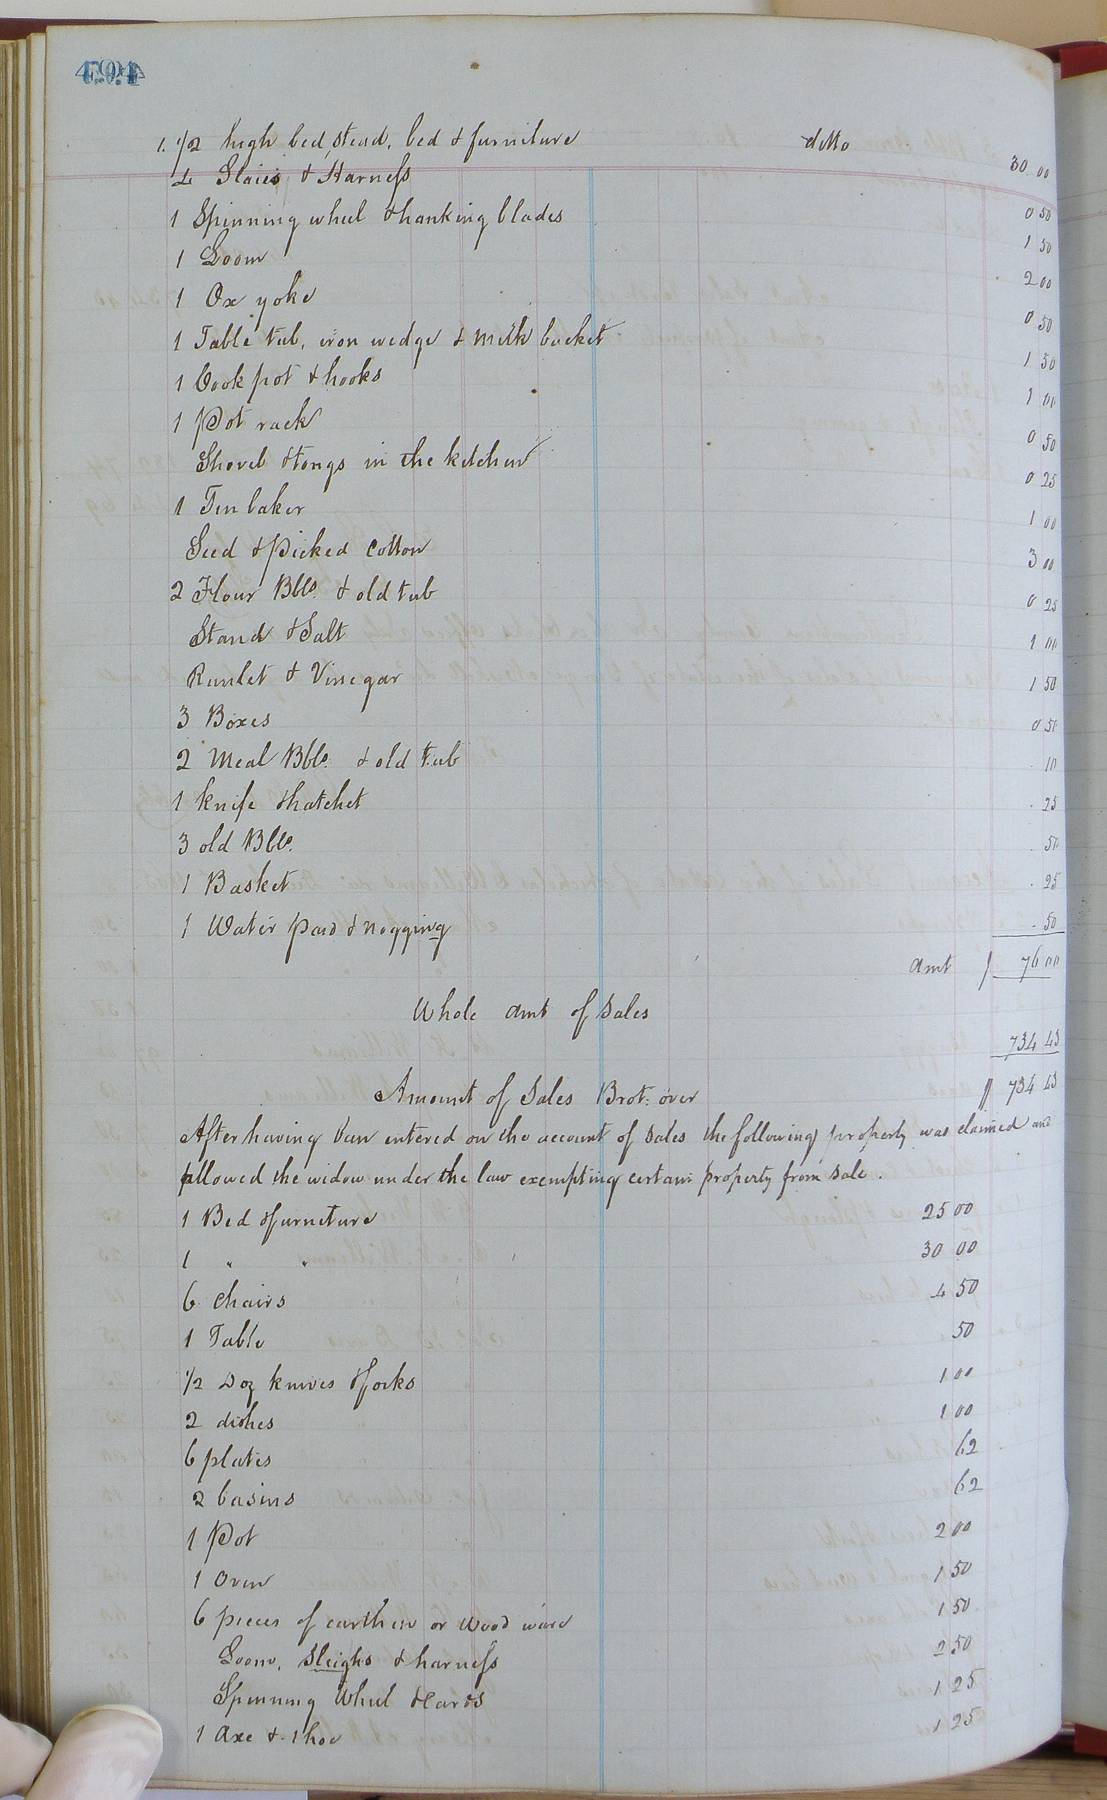 494
1. 1/2 high bed, stead, bed & furniture ditto 30 00
4 Slaies & Harness 0 50
1 Spinning wheel & hanking blades 1 50
1 Loom 2 00
1 Ox yoke 0 50
1 Table tub, iron wedge & milk bucket 1 50
1 Cook pot & hooks 1 00
1 Pot rack 0 50
Shovel & tongs in the kitchen 0 25
1 Tin baker 1 00
Seed & Picked Cotton 3 00
2 Flour Bbls. & old tub 0 25
Stand & Salt 1 00
Runlet & Vinegar 1 50
3 Boxes 0 50
2 Meal Bbls. & old tub 10
1 Knife & hatchet . 25
3 old Bbls. . 50
1 Basket . 25
1 Water Pail & noggin . 50
Amt 76 00
Whole Amt of Sales
734 43
Amount of Sales Brot: over 734 43
After having been entered on the account of sales the following property was claimed and
allowed the widow under the law exempting certain property from sale.
1 Bed & furniture 25 00
1 " " 30 00
6 Chairs 4 50
1 Table 50
1/2 Doz knives & forks 1 00
2 dishes 1 00
6 plates 62
2 basins 62
1 Pot 2 00
1 Oven 1 50
6 pieces of earthen or wood ware 1 50
Loom, Sleighs & harness 2 50
Spinning Wheel & Cards 1 25
1 Axe & 1 hoe 1 25